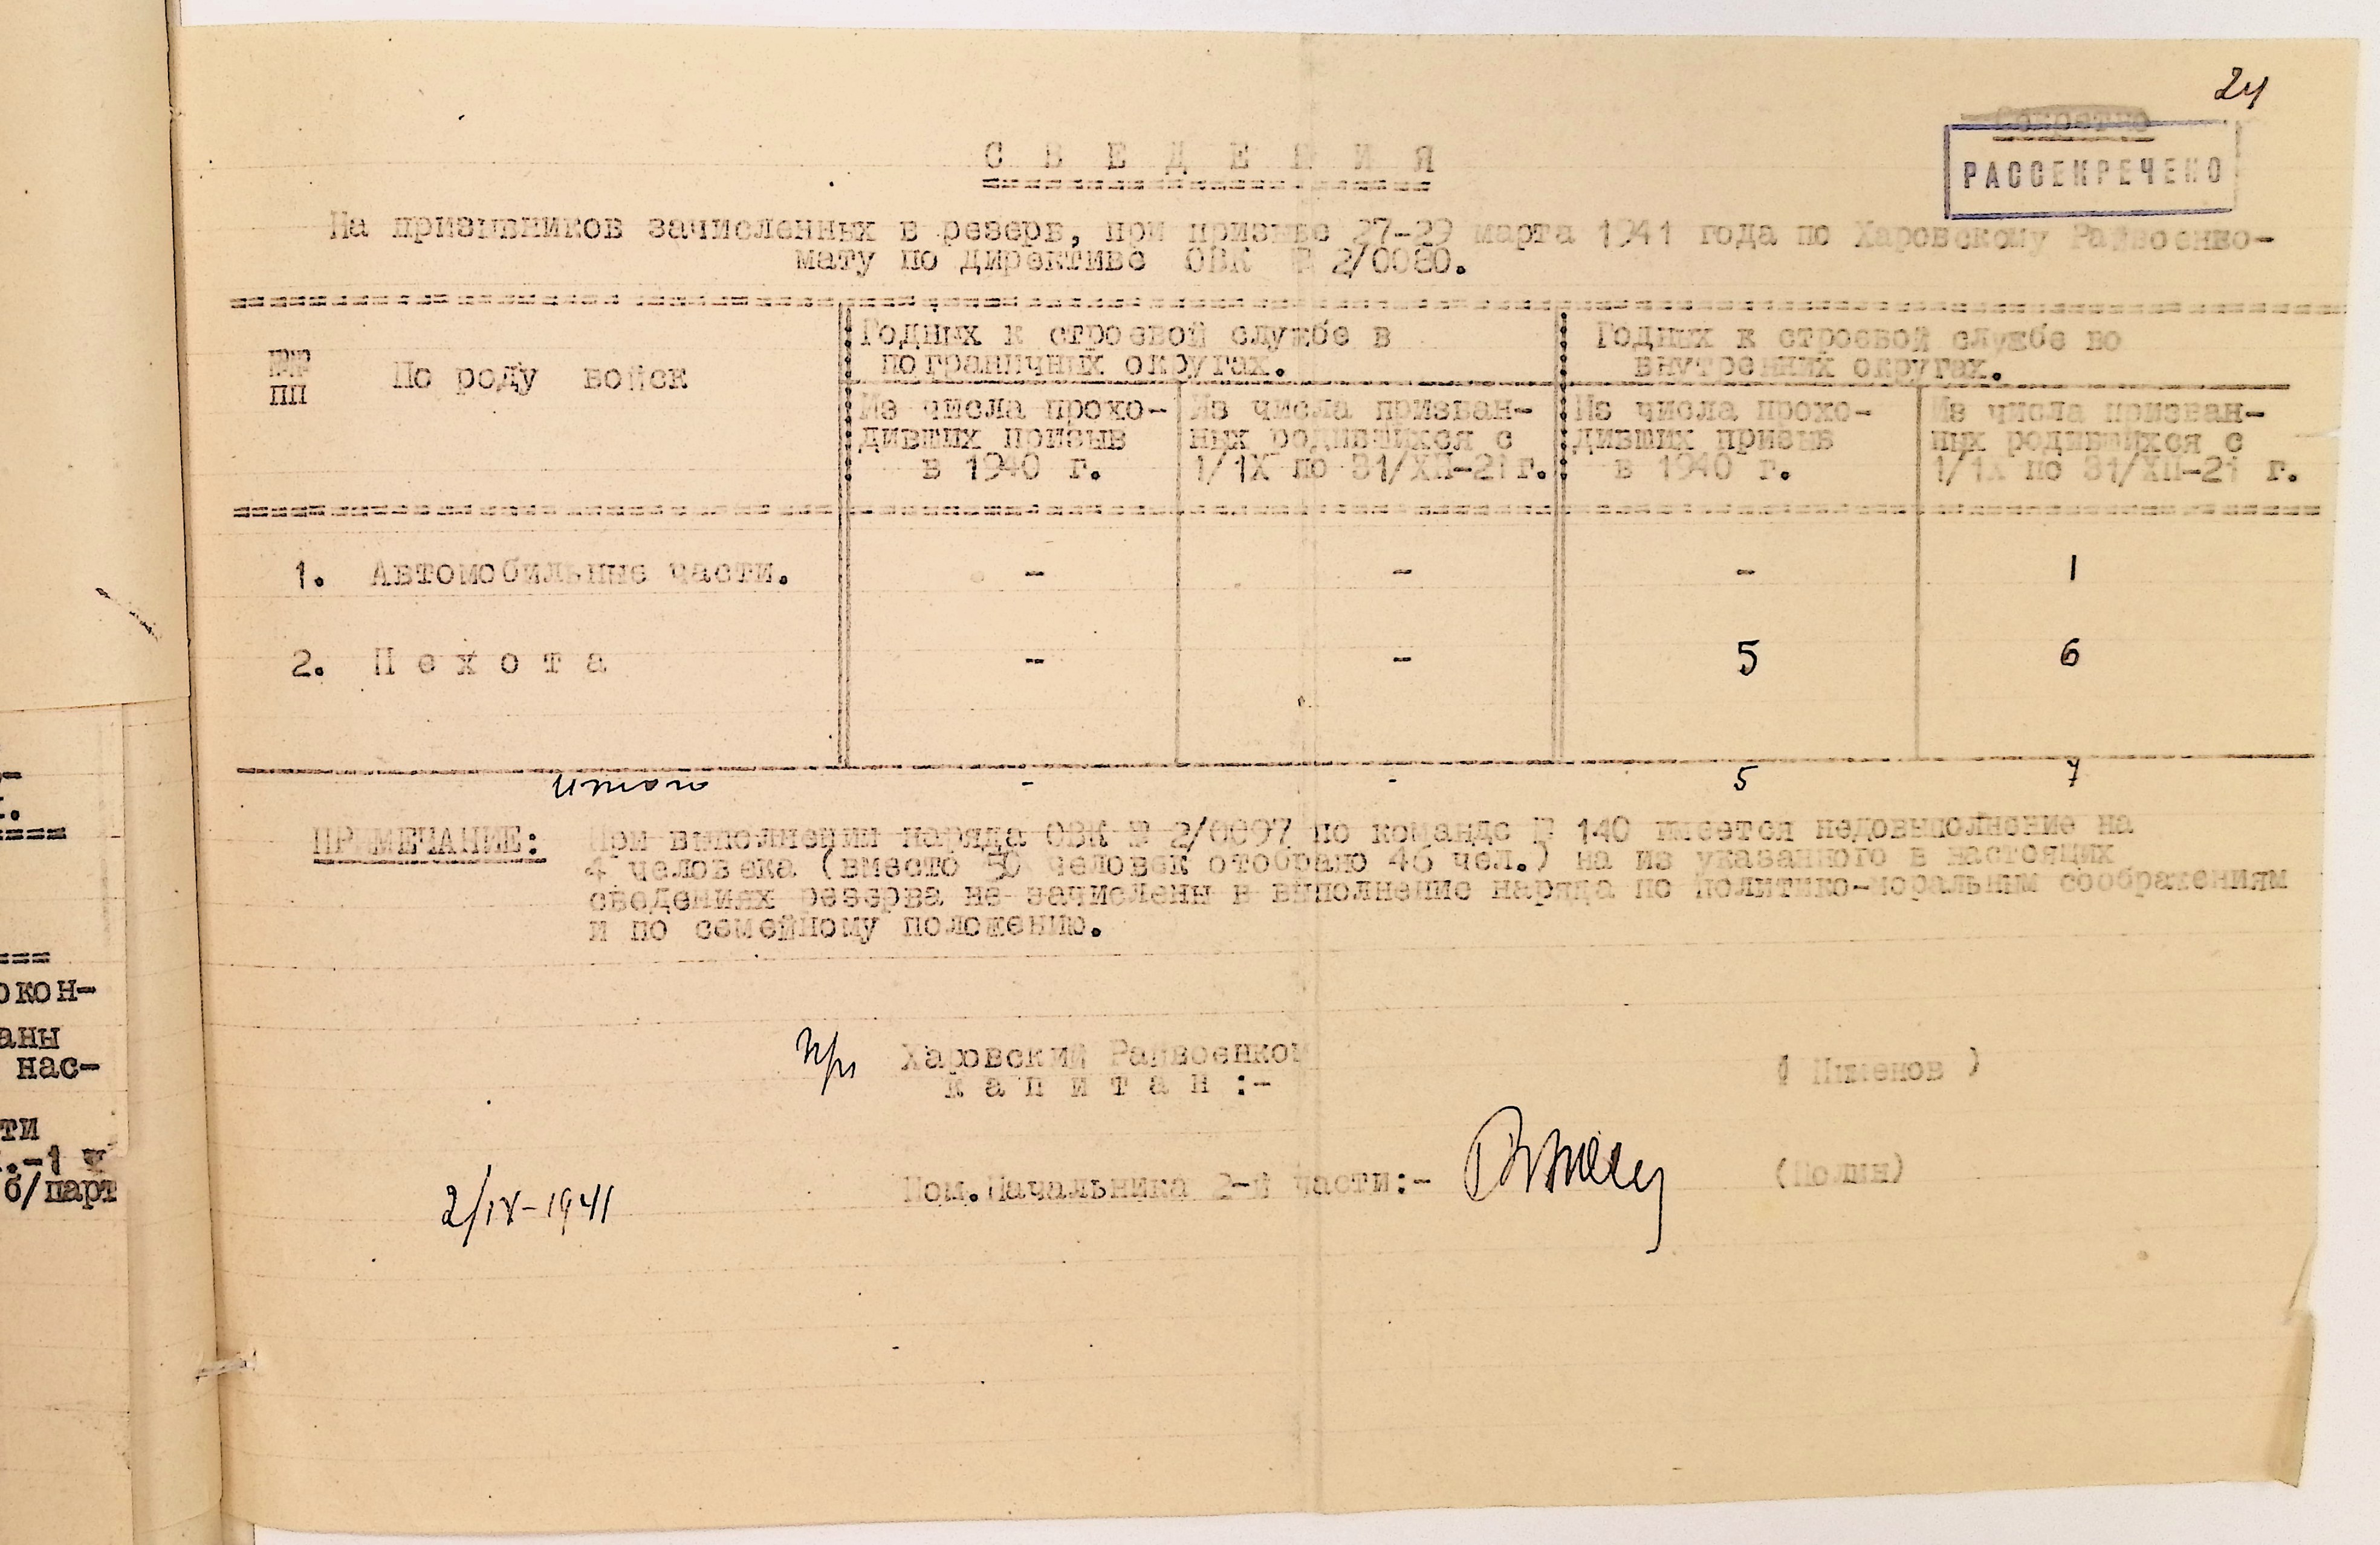 24
Секретно
РАССЕКРЕЧЕНО
С В Е Д Е Н И Я
На призывников зачисленных в резерв, при призыве 27-29 марта 1941 года по Харовскому Райвоенко-
мату по директиве ОВК № 2/0080.
№№
ПП
По роду войск
Годных к строевой службе в
пограничных округах.
Годных к строевой службе во
внутренних округах.
Из числа прохо-
дивших призыв
в 1940 г.
Из числа призван-
ных родившихся с
1/1X по 31/XII-21г.
Из числа прохо-
дивших призыв
в 1940 г.
Из числа призван-
ных родившихся с
1/1X по 31/XII-21 г.
1. Автомобильные части. - - - 1
2. П е х о т а - - 5 6
итого - - 5 7
ПРИМЕЧАНИЕ: При выполнении наряда ОВК № 2/0097 по команде № 140 имеется недовыполнение на
4 человека (вместо 50 человек отобрано 46 чел.) на из указанного в настоящих
сведениях резерва не зачислены в выполнение наряда по политико-моральным соображениям
и по семейному положению.
Харовский Райвоенком
к а п и т а н :- ( Пименов )
Пом.Начальника 2-й части:-
2/IV-1941
-
окон-
аны
нас-
ти
.-1 ч
б/парт